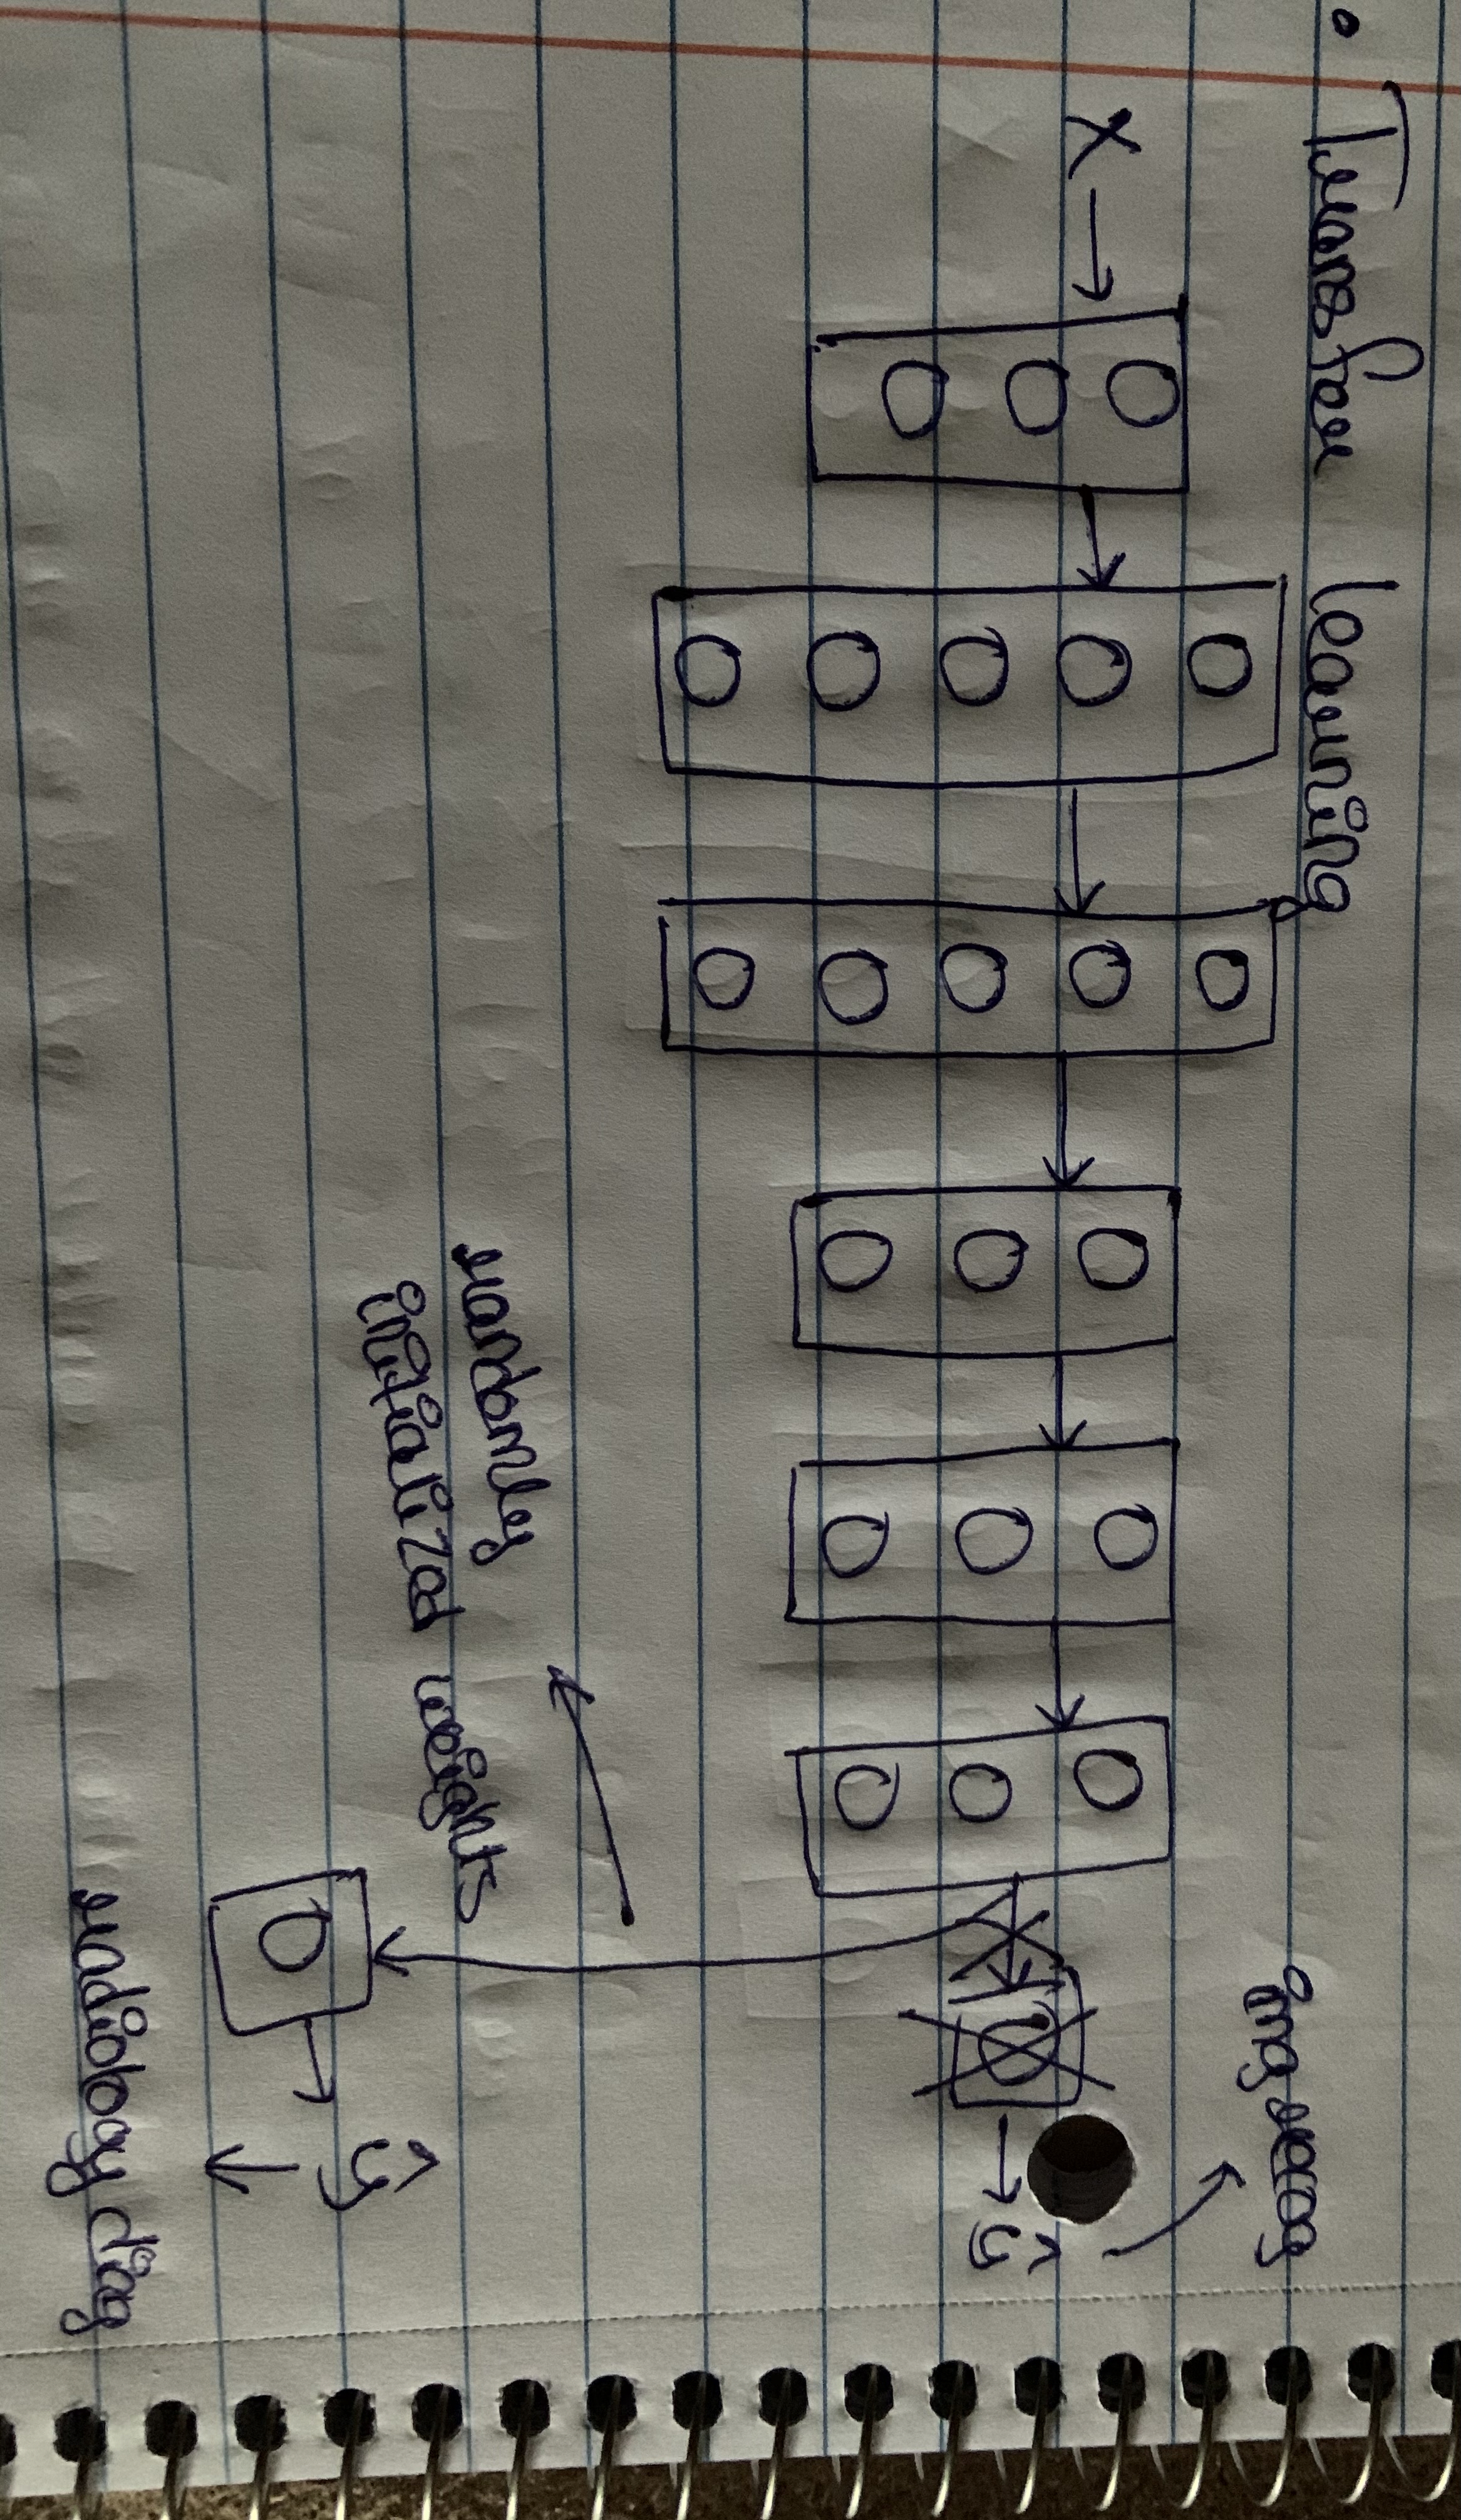 • Transfer learning
img recog
X
ŷ
randomly
initialized weights
ŷ
radiology diag